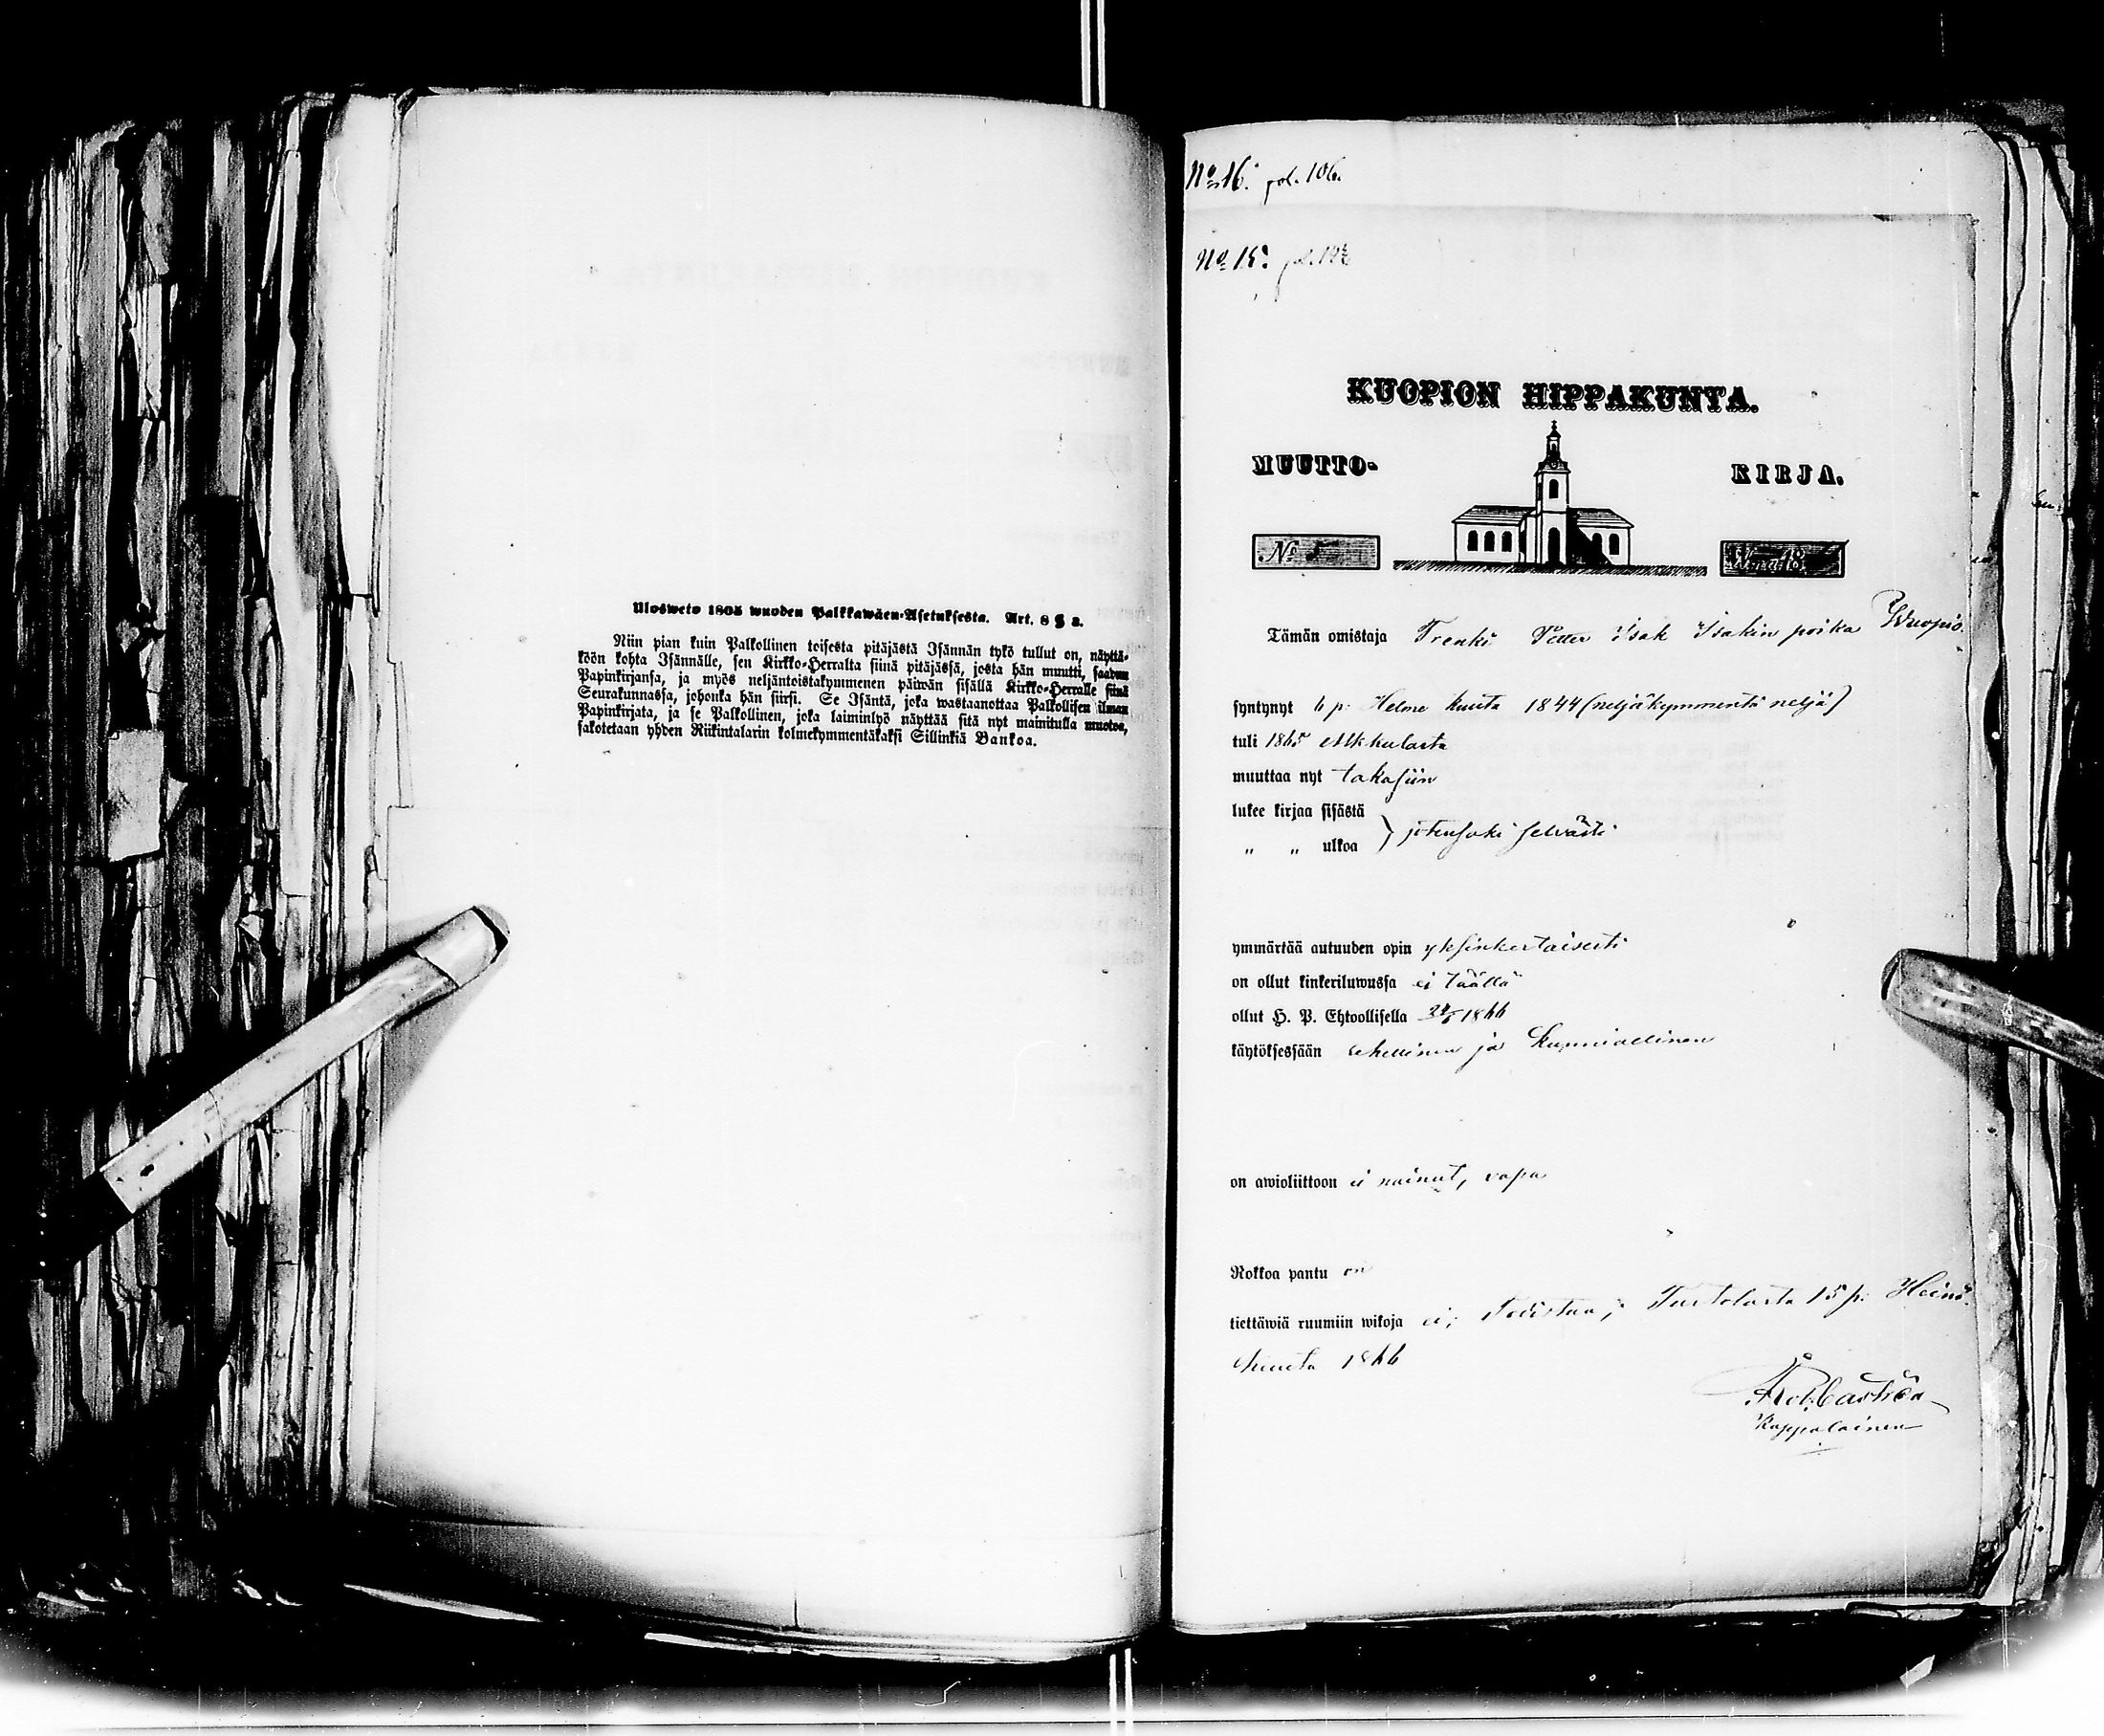 Ulosweto 1805 wuoden Palkkawäen-Asetuksesta. Art. 8 § 3.
Niin pian kuin Palkollinen toisesta pitäjästä Isännän tykö tullut on, näyttä-
köön kohta Isännälle, sen Kirkko-Herralta siinä pitäjässä, josta hän muutti, saadun
Papinkirjansa, ja myös neljäntoistakymmenen päiwän sisällä Kirkko-Herralle siinä
Seurakunnassa, johonka hän siirsi. Se Isäntä, joka wastaanottaa Palkollisen ilman
Papinkirjata, ja se Palkollinen, joka laiminlyö näyttää sitä nyt mainitulla muotoa,
sakotetaan yhden Riikintalarin kolmekymmentäkaksi Sillinkiä Bankoa.
No 16. pol. 106.
No 15. pol.
KUOPION HIPPAKUNTA.
MUUTTO- KIRJA.
No 5 W:na 18
Tämän omistaja Trenki Petter Isak Isakin poika
syntynyt 6 p: Helme kuuta 1844 (neljäkymmentä neljä)
tuli 1865 Alkkulasta
muuttaa nyt takasiin
lukee kirjaa sisästä
„ „ ulkoa } jotensaki selvästi
ymmärtää autuuden opin yksinkertaisesti
on ollut kinkeriluwussa ei täällä
ollut H. P. Ehtoollisella 24/6 1866
käytöksessään rehellinen ja kunniallinen
on awioliittoon ei nainut, vapa
Rokkoa pantu on
tiettäwiä ruumiin wikoja ei; Todistaa, Turtolasta 15 p: Heinä
kuuta 1866
Castrén
Kappalainen